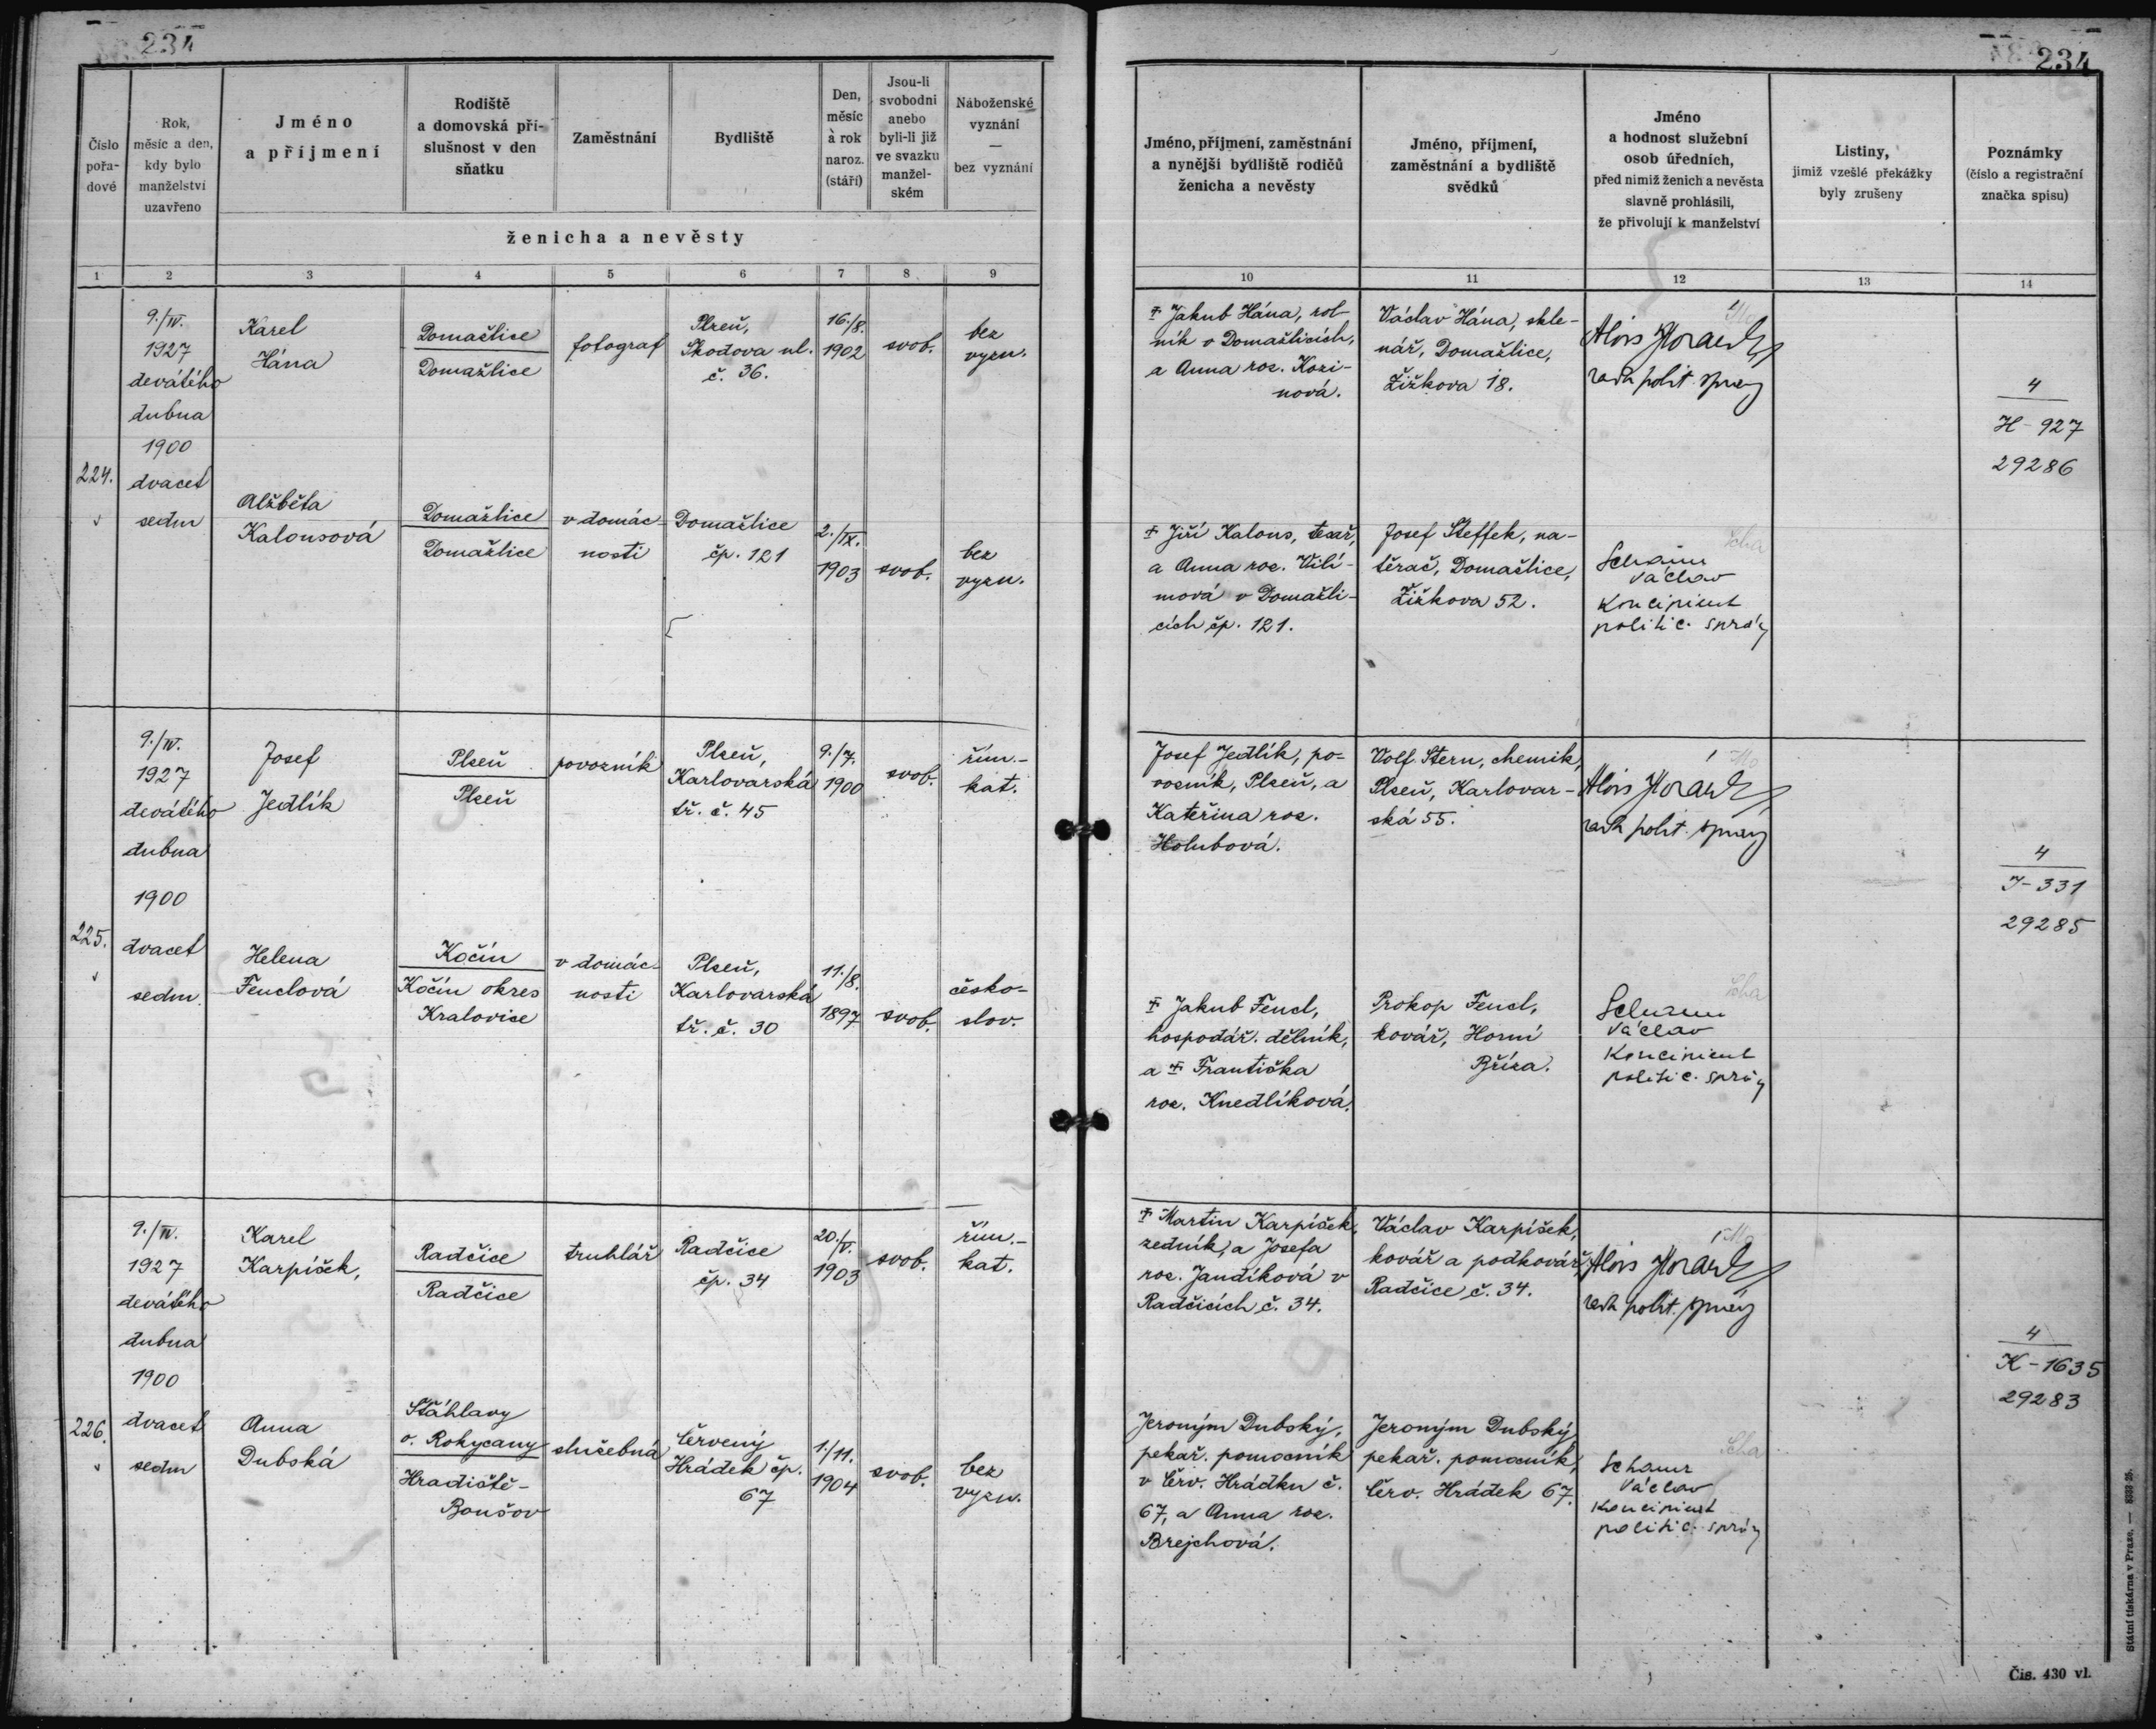 234
Číslo
pořa-
dové
Rok,
měsíc a den,
kdy bylo
manželství
uzavřeno
Jméno
a příjmení
Rodiště
a domovská pří-
slušnost v den
sňatku
Zaměstnání
Bydliště
Den,
měsíc
à rok
naroz.
(stáří)
Jsou-li
svobodni
anebo
byli-li již
ve svazku
manžel-
ském
Náboženské
vyznání
—
bez vyznání
ženicha a nevěsty
1 2 3 4 5 6 7 8 9
224.
9./IV.
1927
devátého
dubna
1900
dvacet
sedm
Karel
Hána
Domažlice
Domažlice
fotograf
Plzeň,
Škodova ul.
č. 36.
16./8.
1902
svob.
bez
vyzn.
Alžběta
Kalousová
Domažlice
Domažlice
v domác-
nosti
Domažlice
čp. 121
2./IX.
1903
svob.
bez
vyzn.
225.
9./IV.
1927
devátého
dubna
1900
dvacet
sedm.
Josef
Jedlík
Plzeň
Plzeň
povozník
Plzeň,
Karlovarská
tř. č. 45
9./7.
1900
svob.
řím.-
kat.
Helena
Fenclová
Kočín
Kočín okres
Kralovice
v domác-
nosti
Plzeň,
Karlovarská
tř. č. 30
11./8.
1897
svob.
česko-
slov.
226.
9./IV.
1927
devátého
dubna
1900
dvacet
sedm
Karel
Karpíšek,
Radčice
Radčice
truhlář
Radčice
čp. 34
20./V.
1903
svob.
řím.-
kat.
Anna
Dubská
Štáhlavy
o. Rokycany
Hradiště-
Boušov
služebná
Červený
Hrádek čp.
67
1./11.
1904
svob.
bez
vyzn.
234
Jméno, příjmení, zaměstnání
a nynější bydliště rodičů
ženicha a nevěsty
Jméno, příjmení,
zaměstnání a bydliště
svědků
Jméno
a hodnost služební
osob úředních,
před nimiž ženich a nevěsta
slavně prohlásili,
že přivolují k manželství
Listiny,
jimiž vzešlé překážky
byly zrušeny
Poznámky
(číslo a registrační
značka spisu)
10 11 12 13 14
‡ Jakub Hána, rol-
ník v Domažlicích,
a Anna roz. Kozi-
nová.
Václav Hána, skle-
nář, Domažlice,
Žižkova 18.
Alois
rada polit. správy
4
H-927
29286
‡ Jiří Kalous, tesař,
a Anna roz. Vilí-
mová v Domažli-
cích čp. 121.
Josef Steffek, na-
těrač, Domažlice,
Žižkova 52.
Václav
koncipient
politic. správy
Josef Jedlík, po-
vozník, Plzeň, a
Kateřina roz.
Holubová.
Volf Stern, chemik,
Plzeň, Karlovar-
ská 55.
Alois
rada polit. správy
4
J-331
29285
‡ Jakub Fencl,
hospodář. dělník,
a ‡ Františka
roz. Knedlíková.
Prokop Fencl,
kovář, Horní
Bříza.
Václav
koncipient
politic. správy
‡ Martin Karpíšek,
zedník, a Josefa
roz. Jandíková v
Radčicích č. 34.
Václav Karpíšek,
kovář a podkovář,
Radčice č. 34.
Alois
rada polit. správy
4
K-1635
29283
Jeroným Dubský,
pekař. pomocník
v Červ. Hrádku č.
67, a Anna roz.
Brejchová.
Jeroným Dubský
pekař. pomocník,
Červ. Hrádek 67.
Václav
koncipient
politic. správy
Státní tiskárna v Praze. — 8333-25.
Čis. 430 vl.